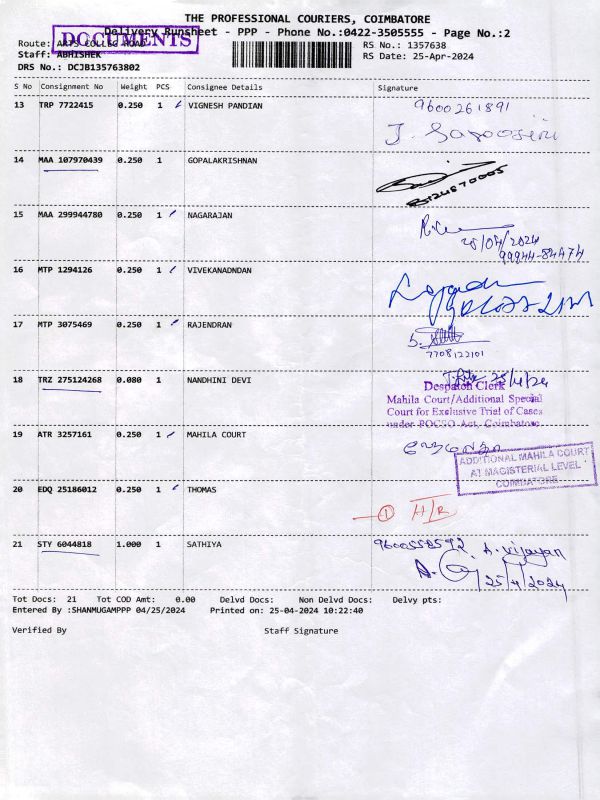 THE PROFESSIONAL COURIERS, COIMBATORE
Delivery Runsheet - PPP - Phone No.:0422-3505555 - Page No.:2
DOCUMENTS
Route: ARTS COLLEG ROAD
RS No.: 1357638
Staff: ABHISHEK
RS Date: 25-Apr-2024
DRS No.: DCJB135763802
S No Consignment No Weight PCS Consignee Details Signature
13 TRP 7722415 0.250 1 VIGNESH PANDIAN
9600261891
14 MAA 107970439 0.250 1 GOPALAKRISHNAN
15 MAA 299944780 0.250 1 NAGARAJAN
25/04/2024
99944-84474
16 MTP 1294126 0.250 1 VIVEKANADNDAN
17 MTP 3075469 0.250 1 RAJENDRAN
7708122101
18 TRZ 275124268 0.080 1 NANDHINI DEVI
25/4/24
Despatch Clerk
Mahila Court/Additional Special
Court for Exclusive Trial of Cases
under POCSO Act, Coimbatore
19 ATR 3257161 0.250 1 MAHILA COURT
ADDITIONAL MAHILA COURT
AT MAGISTERIAL LEVEL
COIMBATORE
20 EDQ 25186012 0.250 1 THOMAS
1 H/R
21 STY 6044818 1.000 1 SATHIYA
9600558592 A. Vijayan
25/4/2024
Tot Docs: 21 Tot COD Amt: 0.00 Delvd Docs: Non Delvd Docs: Delvy pts:
Entered By :SHANMUGAMPPP 04/25/2024 Printed on: 25-04-2024 10:22:40
Verified By Staff Signature